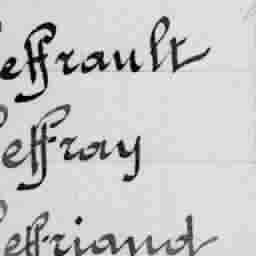 effrault
effray
effriand